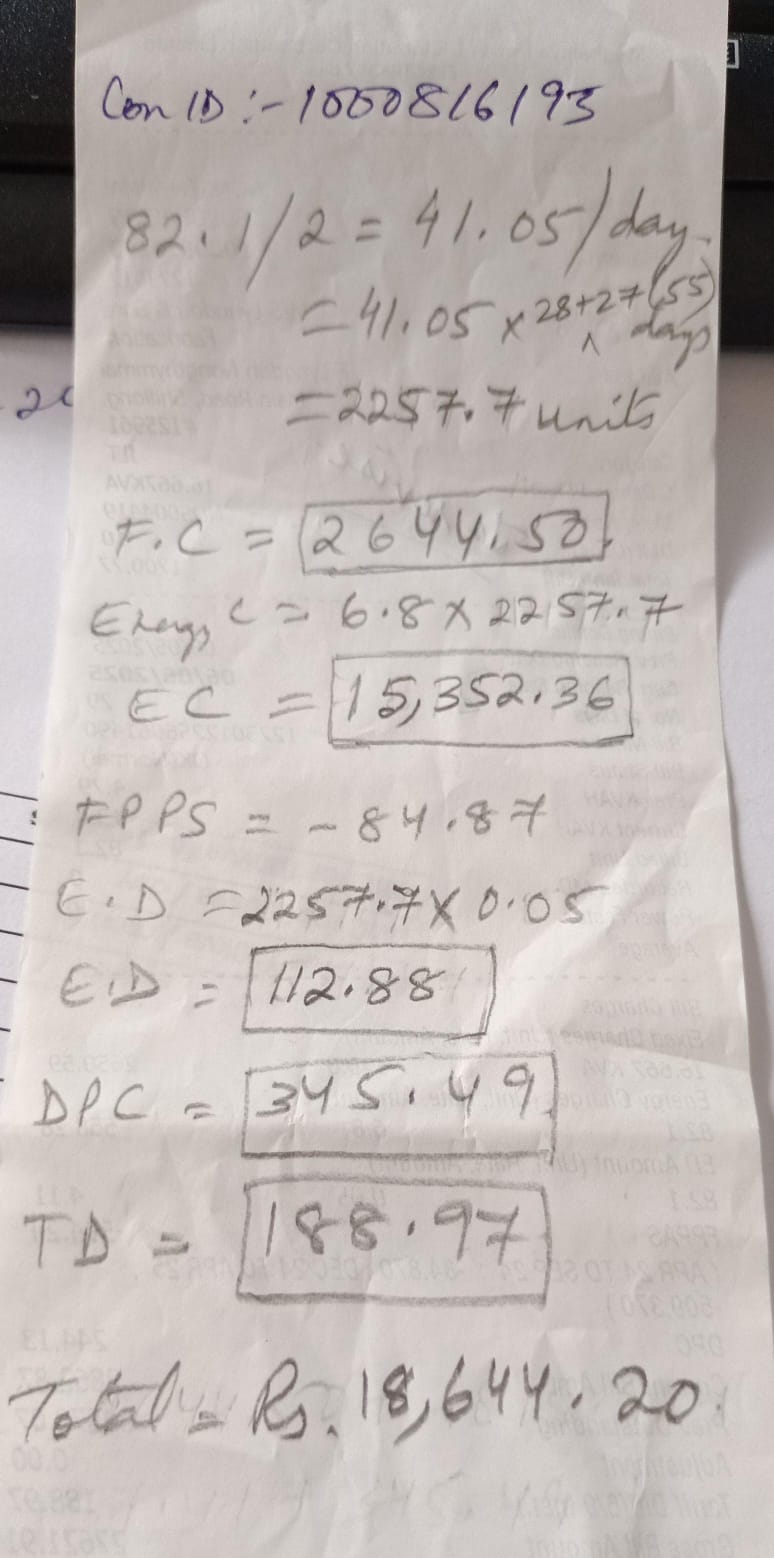 Con ID :- 1000816193
82.1/2 = 41.05/day.
= 41.05 x 28+27 (55) days
= 2257.7 units
F.C = 2644.50
Energy C = 6.8 x 2257.7
EC = 15,352.36
FPPS = - 84.87
E.D = 2257.7 x 0.05
E.D = 112.88
DPC = 345.49
TD = 188.97
Total = Rs. 18,644.20